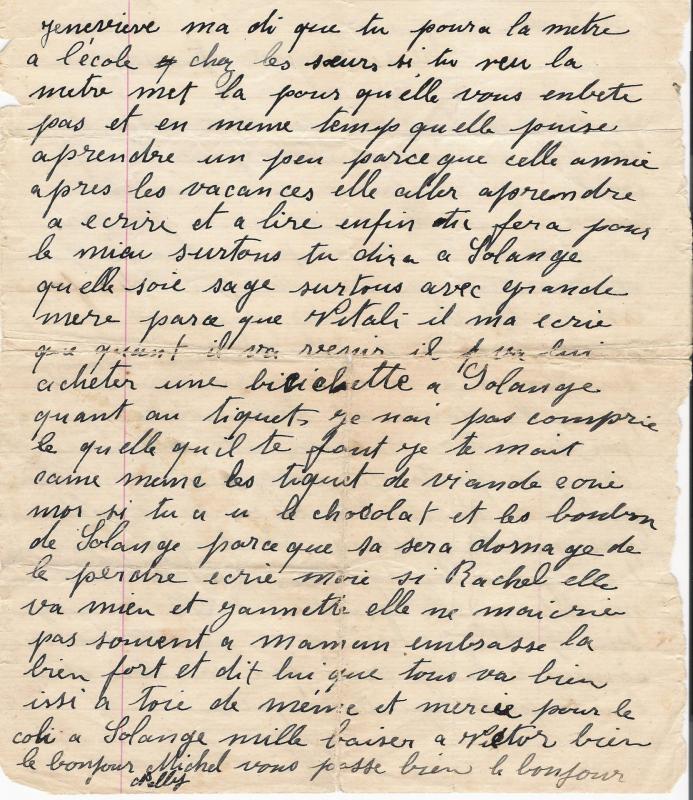 Jenevieve ma di que tu poura la metre
a l'école chez les sœurs si tu veu la
metre met la pour qu'elle vous enbete
pas et en meme temps quelle puise
aprendre un peu parceque celle annie
apres les vacances elle aller aprendre
a ecrire et a lire enfin tu fera pour
le mieu surtous tu dira a Solange
quelle soie sage surtous avec grande
mere parce que Vitali il ma ecrie
que quant il va revenir il va lui
acheter une biciclette a Solange
quant au tiquets je nai pas comprie
le quelle qu'il te faut je te mait
came meme les tiquet de viande ecrie
moi si tu a u le chocolat et les bonbon
de Solange parceque sa sera domage de
le perdre ecrie moie si Rachel elle
va mieu et Jannette elle ne maicrie
pas souvent a maman embrasse la
bien fort et dit lui que tous va bien
issi a toie de méme et mercie pour le
coli a Solange mille baiser a Victor bien
le bonjour Michel vous passe bien le bonjour
Nelly